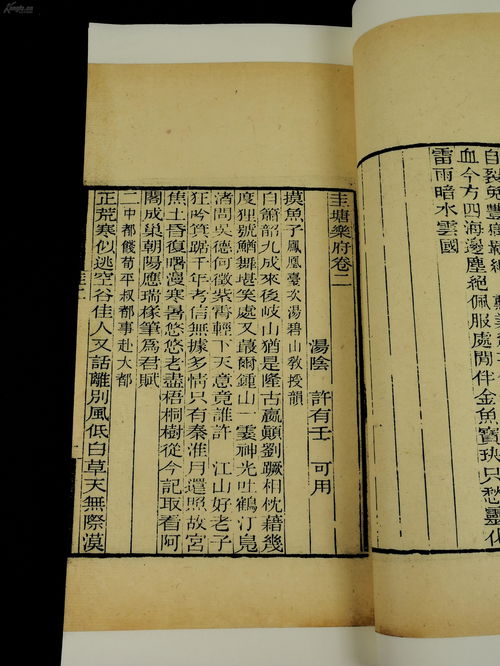 自裂兔豐碑
血今方四海邊塵絕佩服處閒伴金魚寶玦只愁靈化
雷雨暗水雲國
圭塘樂府卷二
湯陰 許有壬 可用
摸魚子鳳凰臺次湯碧山教授韻
自簫韶九成來後岐山猶是隆古嬴顛劉蹶相枕藉幾
度狸號鼯舞堪笑處又蕞爾鍾山一霎神光吐鶴汀鳧
渚問吳德何徵紫霄輕下天意竟誰許 江山好老子
狂吟箕踞千年考信無據多情只有秦淮月還照故宮
焦土昏復曙漫寒暑悠悠老盡梧桐樹從今記取看阿
閣成巢朝陽應瑞椽筆爲君賦
二中都餞荀平叔都事赴大都
正荒寒似逃空谷佳人又話離別風低白草天無際漠